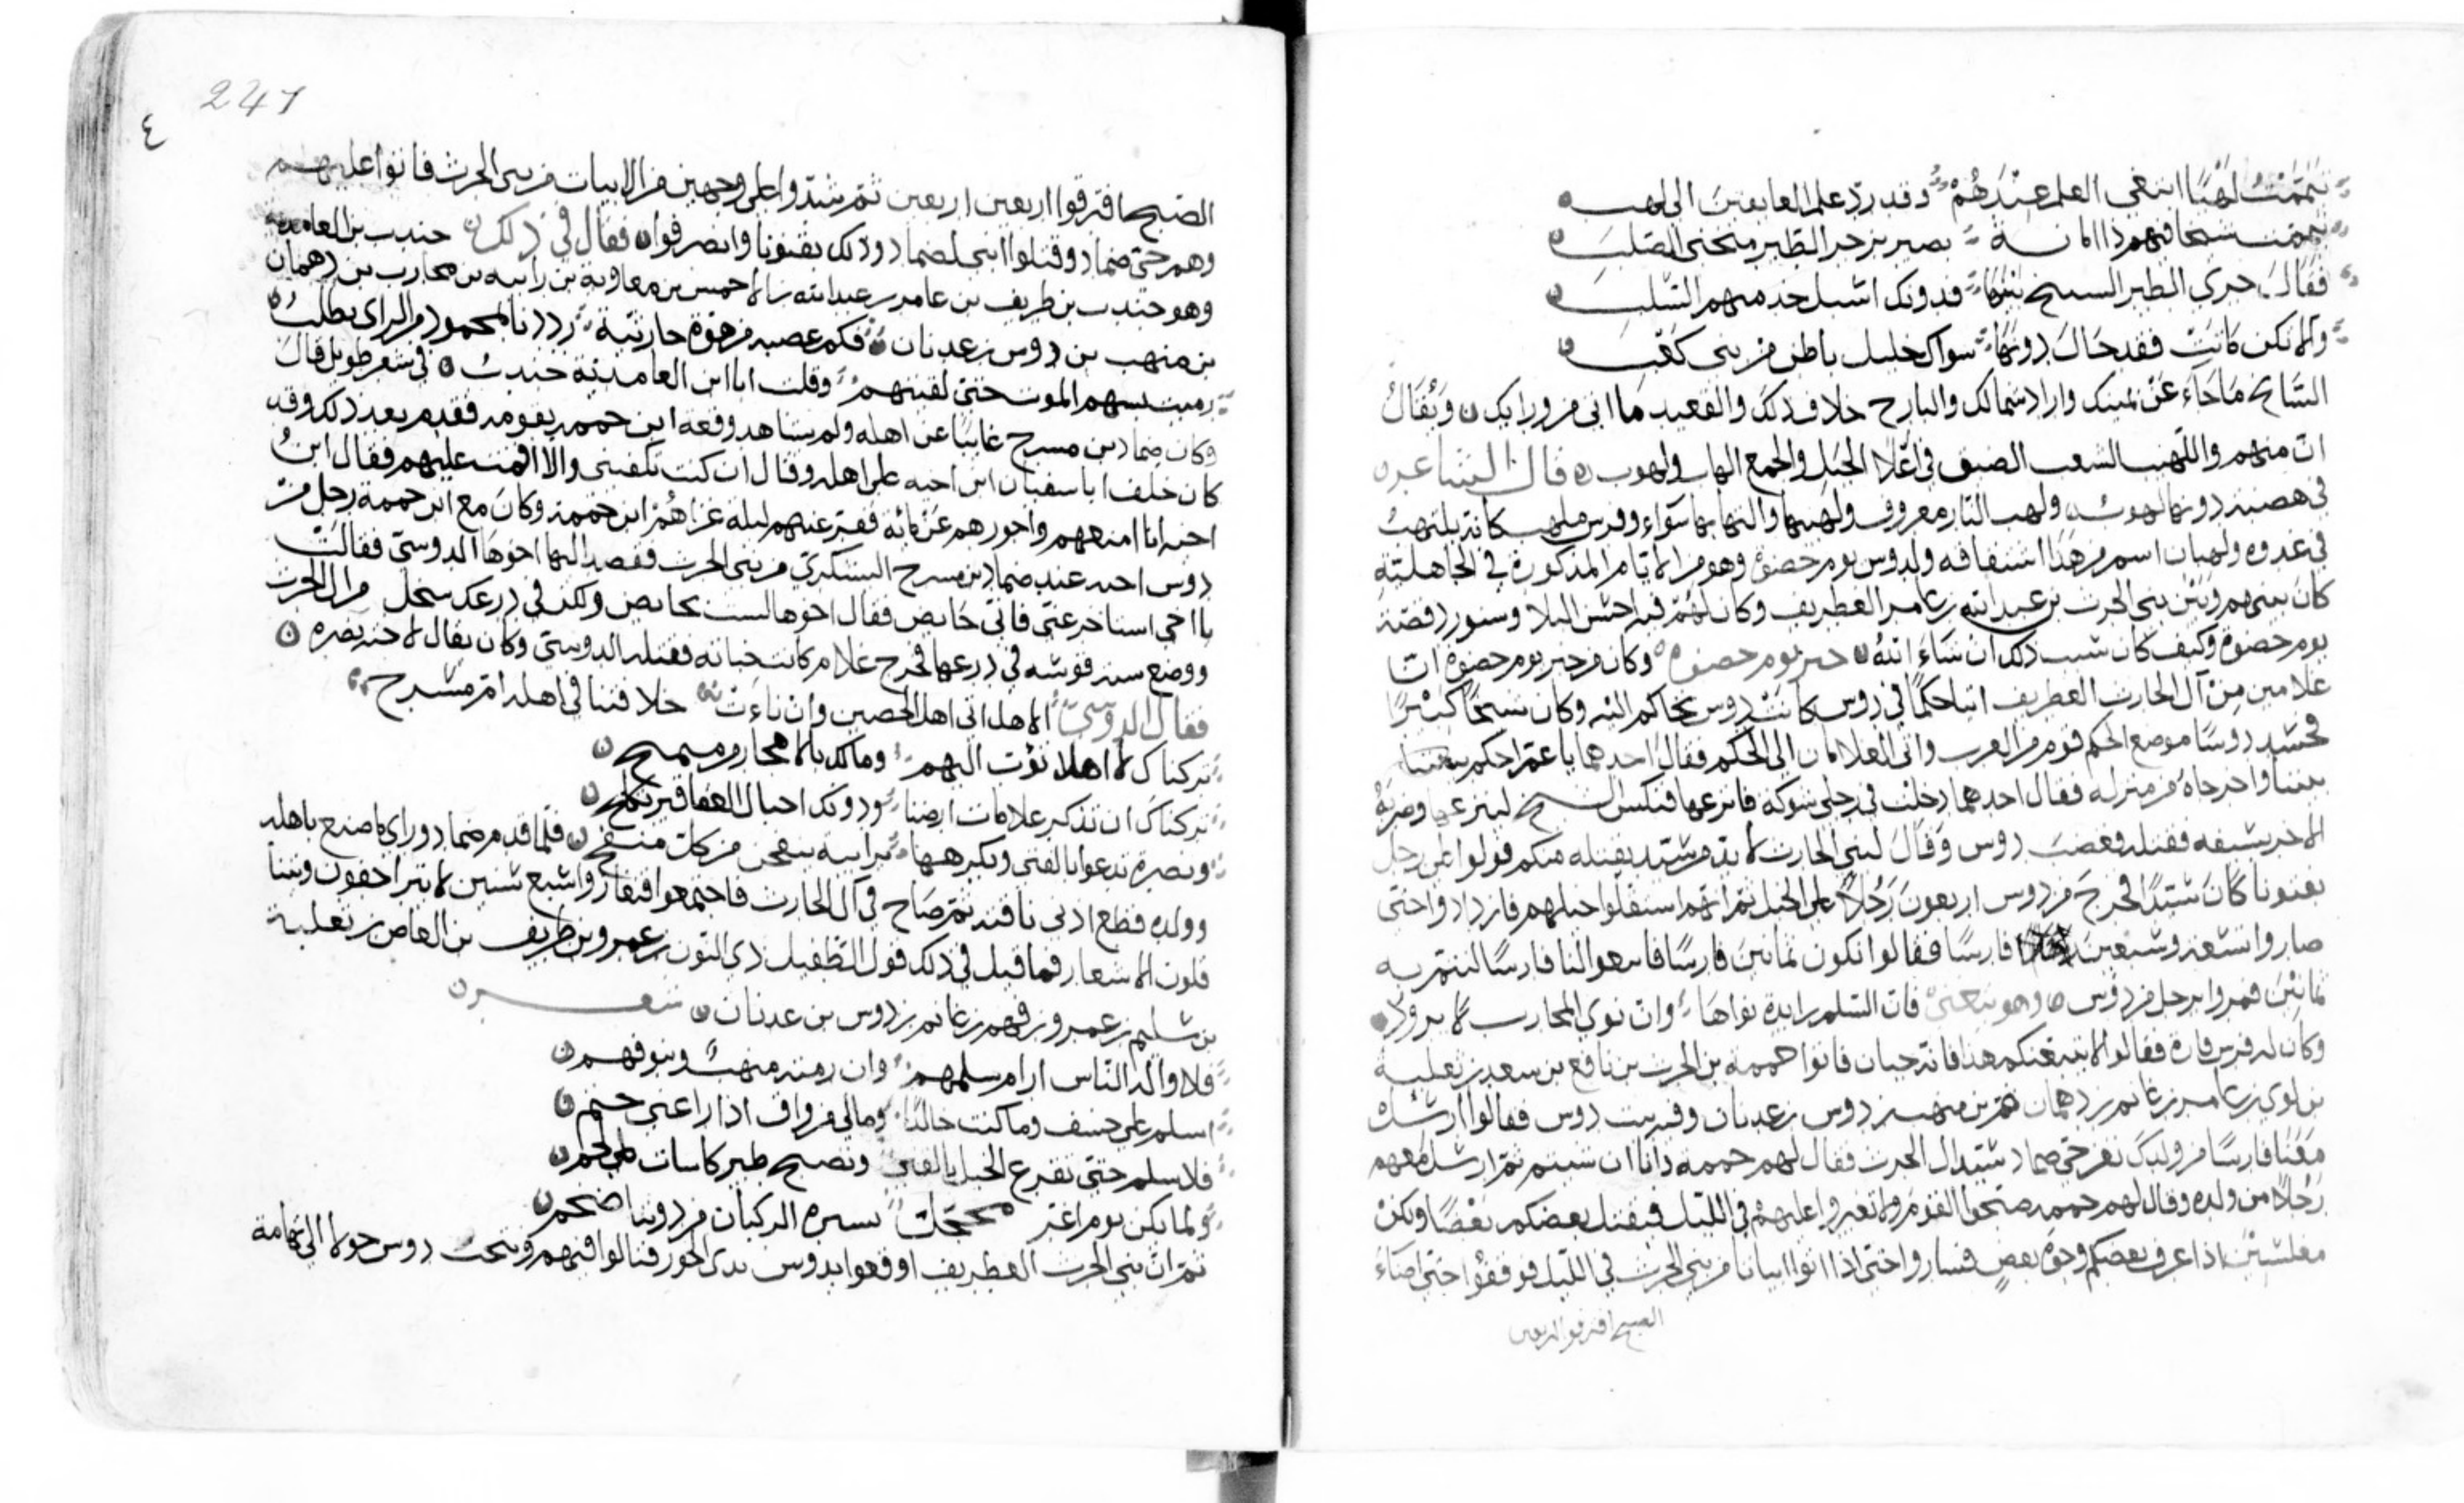 تيممت لهبا ابتغي العلم عندهم وقد رد علم العايفين الى لهب
تيممت شيخا منهم ذا امانة بصير بزجر الطير منحني الصلب
فقال جرى الطير السنيح بينها فدونك اسبل جد منهم السلب
والا تكن كانت فقد حال دونها سواك خليل باطن من بني كعب
السانح ما جاء عن يمينك واراد شمالك والبارح خلاف ذلك والقعيد ما اتى من ورايك ويقال
ان منهم واللهب الشعب الضيق في اعلا الجبل والجمع الهاب ولهوب قال الشاعر
في هضبة دونها لهوب ولهب النار معروف ولهبها والتهابها سواء وفرس ملهب كانه يلتهب
في عدوه ولهبان اسم من هذا اشتقاقه ولدوس يوم حضوة وهو من الايام المذكورة في الجاهلية
كان بينهم وبين بني الحرث بن عبد الله بن عامر الغطريف وكان لهم فيه احسن البلا وسنورد قصة
يوم حضوة وكيف كان سبب ذلك ان شاء الله خبر يوم حضوة وكان من خبر يوم حضوة ان
غلامين من آل الحارث الغطريف اتيا حكما في دوس كانت دوس تحاكم اليه وكان شيخا كبيرا
فحسد دوسا موضع الحكم قوم من العرب واتى الغلامان الى الحكم فقال احدهما يا عم احكم بيننا
بيننا واخرجاه من منزله فقال احدهما دخلت في رجلي شوكه فانزعها فنكس الشيخ لينزعها وضربه
الاخر بسيفه فقتله فغضبت دوس وقال لبني الحارث لا بد من سيد يقتله منكم قولوا على رجل
يعنونا كان سيدا فخرج من دوس اربعون رجلا على الخيل ثم انهم استقلوا خيلهم فازدادوا حتى
صاروا تسعة وسبعين فارسا فقالوا نكون ثمانين فارسا فابعوا لنا فارسا لنتم به
ثمانين فمروا برجل من دوس وهو يتغنى فان السلم زايدة نواها وان نوى المحارب لا يروق
وكان له فرس فارة فقالوا لا يتبعنكم هذا فانه جبان فاتوا حممة بن الحرث بن نافع بن سعد بن ثعلبة
بن لوي بن عامر بن غانم بن دهمان بن منهب بن دوس بن عدنان وقربت دوس فقالوا ارسل
معنا فارسا من ولدك نغزو حتى ضماد سيد آل الحرث فقال لهم حممة وانا ان شيتم ثم ارسل معهم
رجلا من ولده وقال لهم حممة صبحوا القوم ولا تغيروا عليهم في الليل فيقتل بعضكم بعضا ولكن
مغلسين اذا عرف بعضكم وجوه بعض فساروا حتى اذا اتوا ابياتا من بني الحرث في الليل فوقفوا حتى اضاء
الصبح افترقوا اربعين
247
٤
الصبح افترقوا اربعين اربعين ثم شدوا على وجهين من الابيات من بني الحرث فاتوا عليهم
وهم حتى ضماد وقتلوا ابني لضماد وذلك بقنونا وانصرفوا فقال في ذلك جندب بن العامدية
وهو جندب بن طريف بن عامر بن عبد الله بن الاحمس بن معاوية بن راسبه بن محارب بن دهمان
بن منهب بن دوس بن عدنان فكم عصبه من قوة حارثية رددنا بمحمود من الراي يطلب
رميت بسهم الموت حتى لقيتهم وقلت انا ابن الغامدية جندب في شعر طويل قال
وكان ضماد بن مسرح غايبا عن اهله ولم يشاهد وقعه ابن حممه بقومه فقدم بعد ذلك وقد
كان خلف ابا سفيان ابن اخيه على اهله وقال ان كنت تكفيني والا اقمت عليهم فقال ابن
اخيه انا امنعهم واحورهم عن مائة ففتر عنهم ليلة غزاهم ابن حممة وكان مع ابن حممة رجل من
دوس اخته عند ضماد بن مسرح اليشكري من بني الحرث فقصد اليها اخوها الدوسي فقالت
يا اخي استاخر عني فاني حايض فقال اخوها لست بحايض ولكن في درعك سخل من آل الحرث
ووضع سية قوسه في درعها فخرج غلام كانت خباته فقتله الدوسي وكان يقال لاخته نضره
فقال الدوسي الا هل اتى اهل الحصين وان ناءت خلافتنا في اهله ام مسرح
تركناك لا اهلا نؤت اليهم وما لك بالامحار من ميمح
تركناك ان تذكر علامات ارضنا ودونك احبال العفاقير تكلح
ونضرة تدعو بالفنى وبكرهها برابية ينفحن من كل منفح فلما قدم ضماد وراى ما صنع باهله
وولده قطع ادنى ناقته ثم صاح في آل الحارث فاجتمعوا فتغاروا سبع سنين لا يتراحفون وبينا
قلون الاشعار فما قيل في ذلك قول الطفيل ذي النون بن عمرو بن طريف بن العاص بن ثعلبة
بن سليم بن عمرو بن فهم بن غانم بن دوس بن عدنان شعر
فلا واله الناس ارام سلمهم وان رمته منهب وبنو فهم
اسلم على خسف وما كنت خالدا ومالي من واق اذا راعني حتم
فلا سلم حتى تقرع الخيل بالقنا وتصبح طير كاسات على لحم
ولما يكن يوم اغر محجل يسيره الركبان من دوننا ضخم
ثم ان بني الحرث الغطريف اوقعوا بدوس بذى الحور فنالوا منهم وتنحت دوس حولا الى تهامة